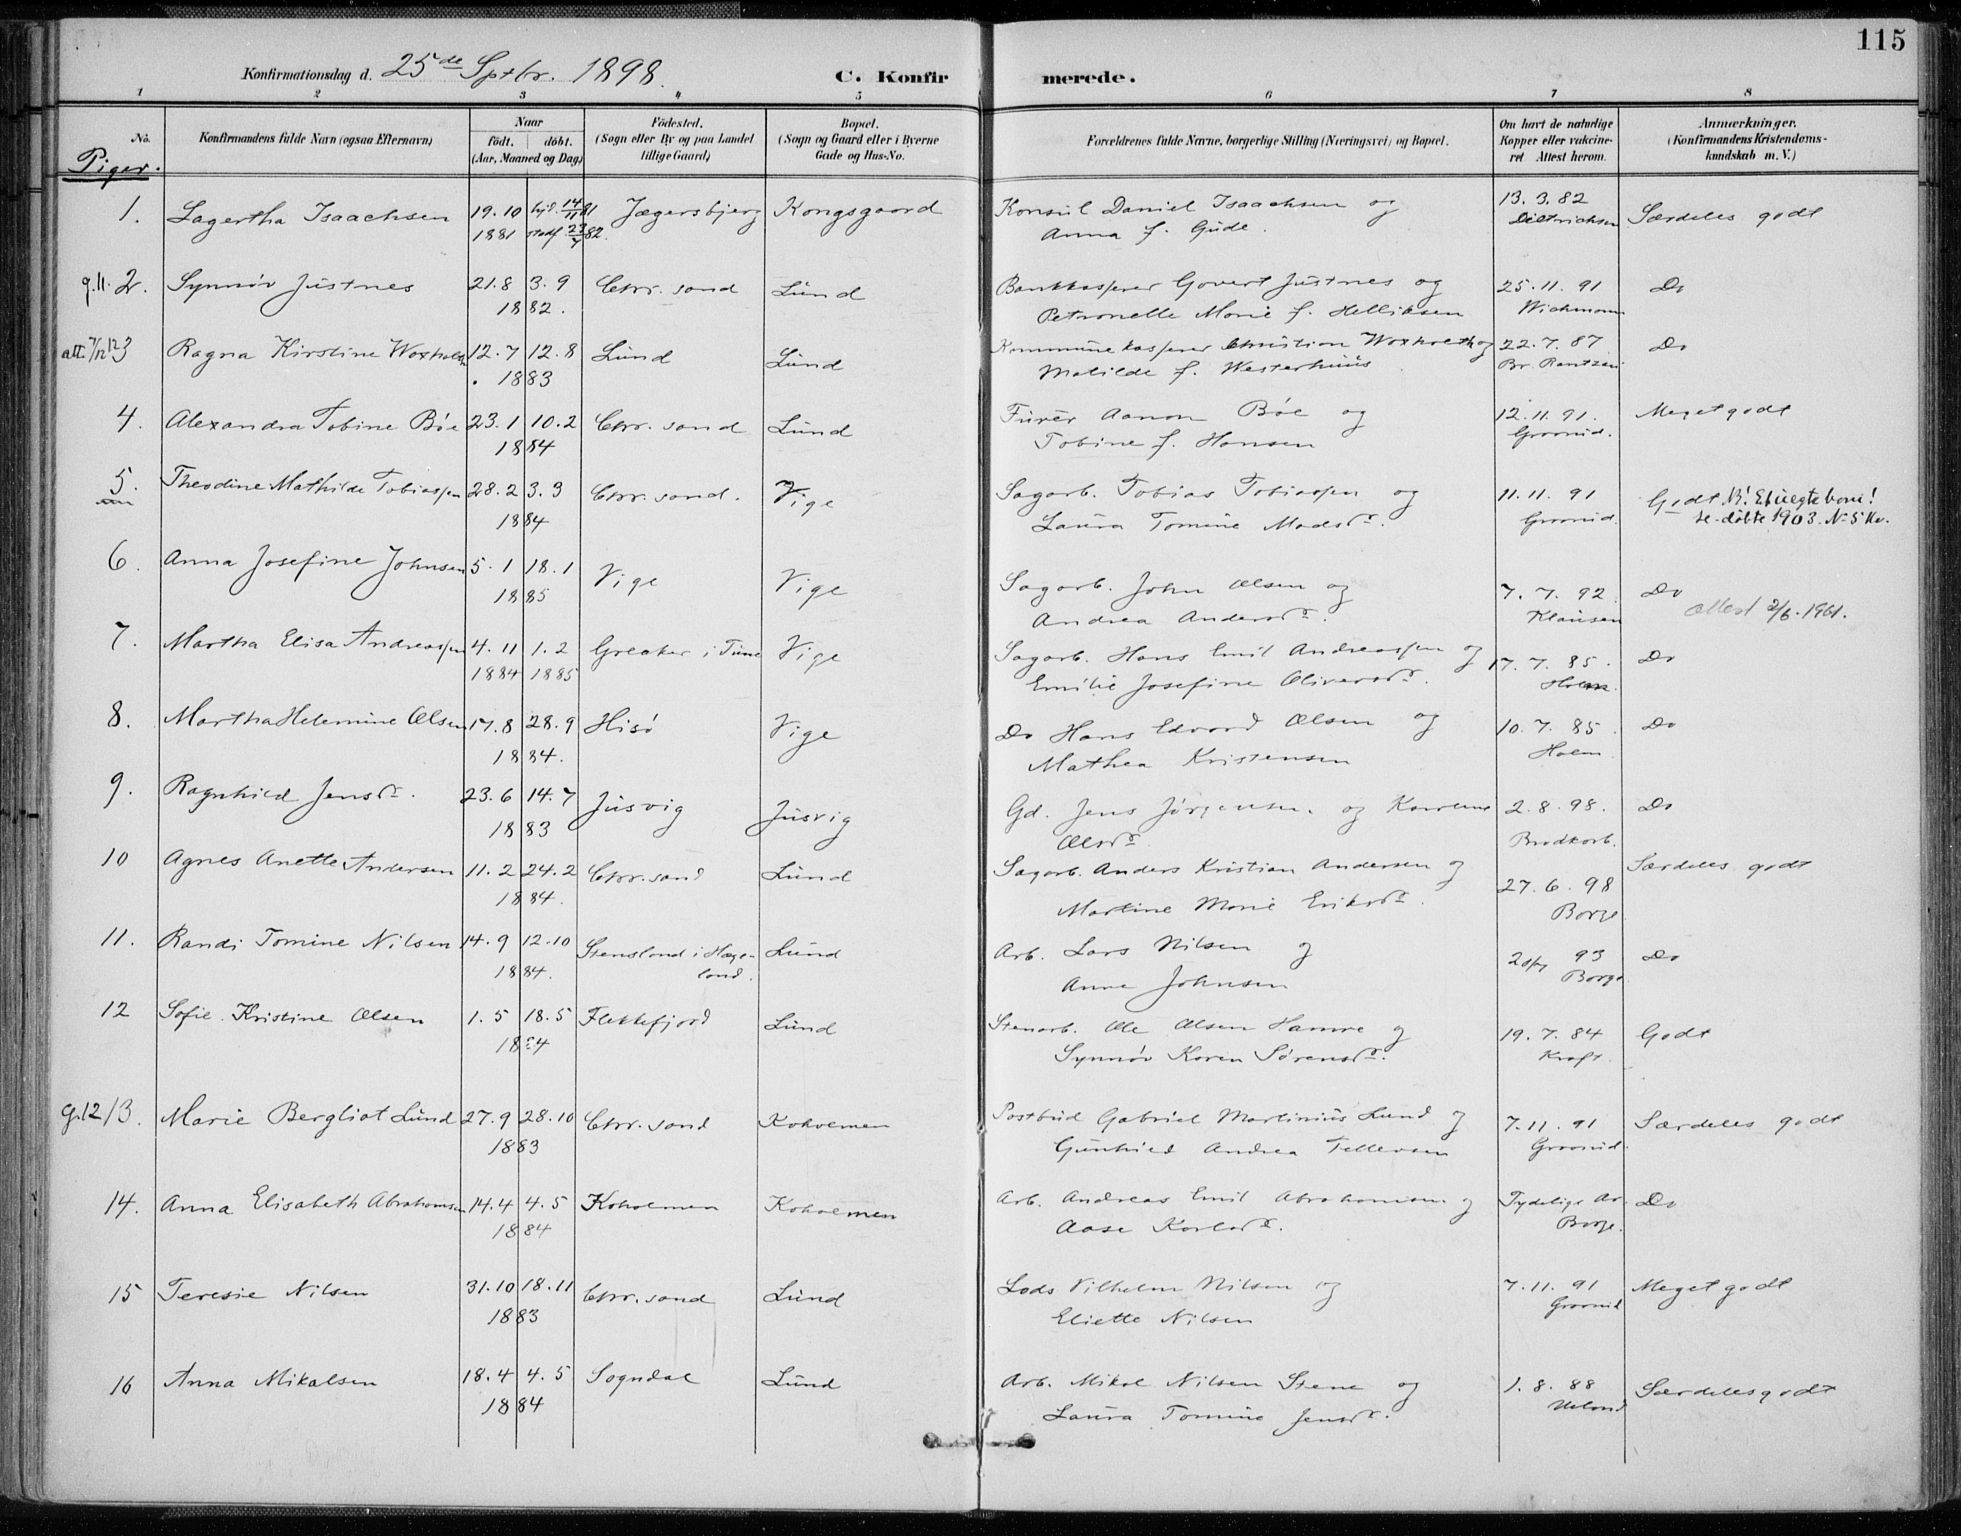 115
Konfirmationsdag d. 25de Sptbr. 1898.
C. Konfirmerede.
1 2 3 4 5 6 7 8
No. Konfirmandens fulde Navn (ogsaa Efternavn) Naar født. døbt. (Aar, Maaned og Dag) Fødested. (Sogn eller By og paa Landet tillige Gaard) Bopæl. (Sogn og Gaard eller i Byerne Gade og Hus-No. Forældrenes fulde Navne, borgerlige Stilling (Næringsvei) og Bopæl. Om havt de naturlige Kopper eller vakcineret Attest herom. Anmærkninger. (Konfirmandens Kristendomskundskab m. V.)
Piger.
1. Lagertha Isaachsen 19.10 hjd. 14/11 81 Jægersbjerg Kongsgaard Konsul Daniel Isaachsen og 13.3.82 Særdeles godt
1881 stadf. 23/7 82. Anna f. Gude. Dietrichsen
g.11. 2. Synnøv Justnes 21.8 3.9 Chr.sand Lund Bankkasserer Govert Justnes og 25.11.91 Do
1882. Petronelle Marie f. Helliksen Wichmann
att. 7/12 12 3 Ragna Kirstine Woxholth 12.7 12.8 Lund Lund Kommunekasserer Christian Woxholth og 22.7.87 Do
1883 Matilde f. Westerhuus Br. Rantzau
4. Alexandra Tobine Bøe 23.1 10.2 Chr.sand Lund Furér Aanon Bøe og 12.11.91. Meget godt
1884 Tobine f. Hansen Groosud.
5. Theodine Mathilde Tobiassen 28.2 3.3 Chr.sand. Vige Sagarb. Tobias Tobiassen og 11.11.91 Godt. NB! Et uegte barn!
1884 Laura Tomine Madsdr. Groosud. se døbte 1903. No 5 Kv.
6. Anna Josefine Johnsen 5.1 18.1 Vige Vige Sagarb. John Olsen og 7.7.92. Do
1885 Andrea Andersdr. Klausen Attest 2/6.1961.
7. Martha Elisa Andreassen 4.11 1.2 Greaker i Tune Vige Sagarb. Hans Emil Andreassen og 17.7.85. Do
1884 1885 Emilie Josefine Oliversdr. Holm.
8. Martha Helemine Olsen 17.8 28.9 Hisø Vige Do Hans Edvard Olsen og 10.7.85. Do
1884. Mathea Kristensen Holm
9. Ragnhild Jensdr. 23.6 14.7 Jusvig Jusvig Gd. Jens Jørgensen. og Karene 2.8.98. Do
1883 Olsdr. Brodkorb.
10 Agnes Anette Andersen 11.2 24.2 Chr.sand Lund Sagarb. Anders Kristian Andersen og 27.6.98 Særdeles godt
1884. Martine Marie Eriksdr. Borge
11. Randi Tomine Nilsen 14.9 12.10 Stensland i Hægeland. Lund Arb. Lars Nilsen og 93 Do
1884. Anne Johnsen Borge
12 Sofie Kristine Olsen 1.5 18.5 Flekkefjord Lund Stenarb. Ole Olsen Hamre og 19.7.84 Godt
1884 Synnøv Karen Sørensdr. Kraft.
g.12 13. Marie Bergliot Lund 27.9 28.10 Chr.sand Koholmen Postbud Gabriel Martinius Lund og 7.11.91 Særdeles godt
1883 Gunhild Andrea Tellevsen Groosud.
14. Anna Elisabeth Abrahamsen 14.4 4.5 Koholmen Koholmen Arb. Andreas Emil Abrahamsen og Tydelige Ar Do
1884 Aase Karlsdr. Borge.
15 Teresie Nilsen 31.10 18.11 Chr.sand Lund Lods Vilhelm Nilsen og 7.11.91 Meget godt
1883 Eliette Nilsen Groosud
16 Anna Mikalsen 18.4 4.5 Sogndal Lund Arb. Mikal Nilsen Stene og 1.8.88 Særdeles godt
1884 Laura Tomine Jensdr. Ueland